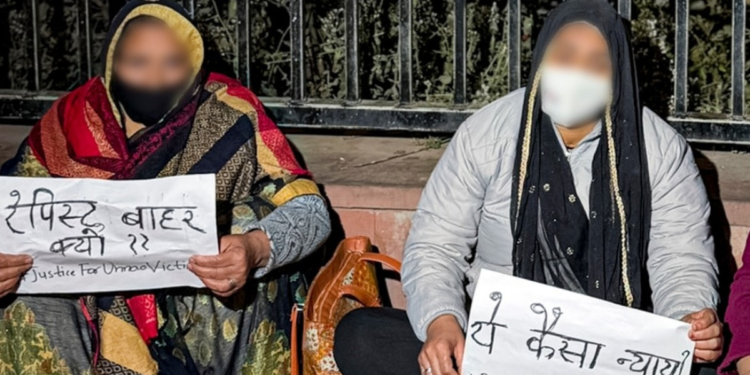 रेपिस्ट बाहर
क्यों ??
#Justice For Unnao Victi
ये कैसा न्याय